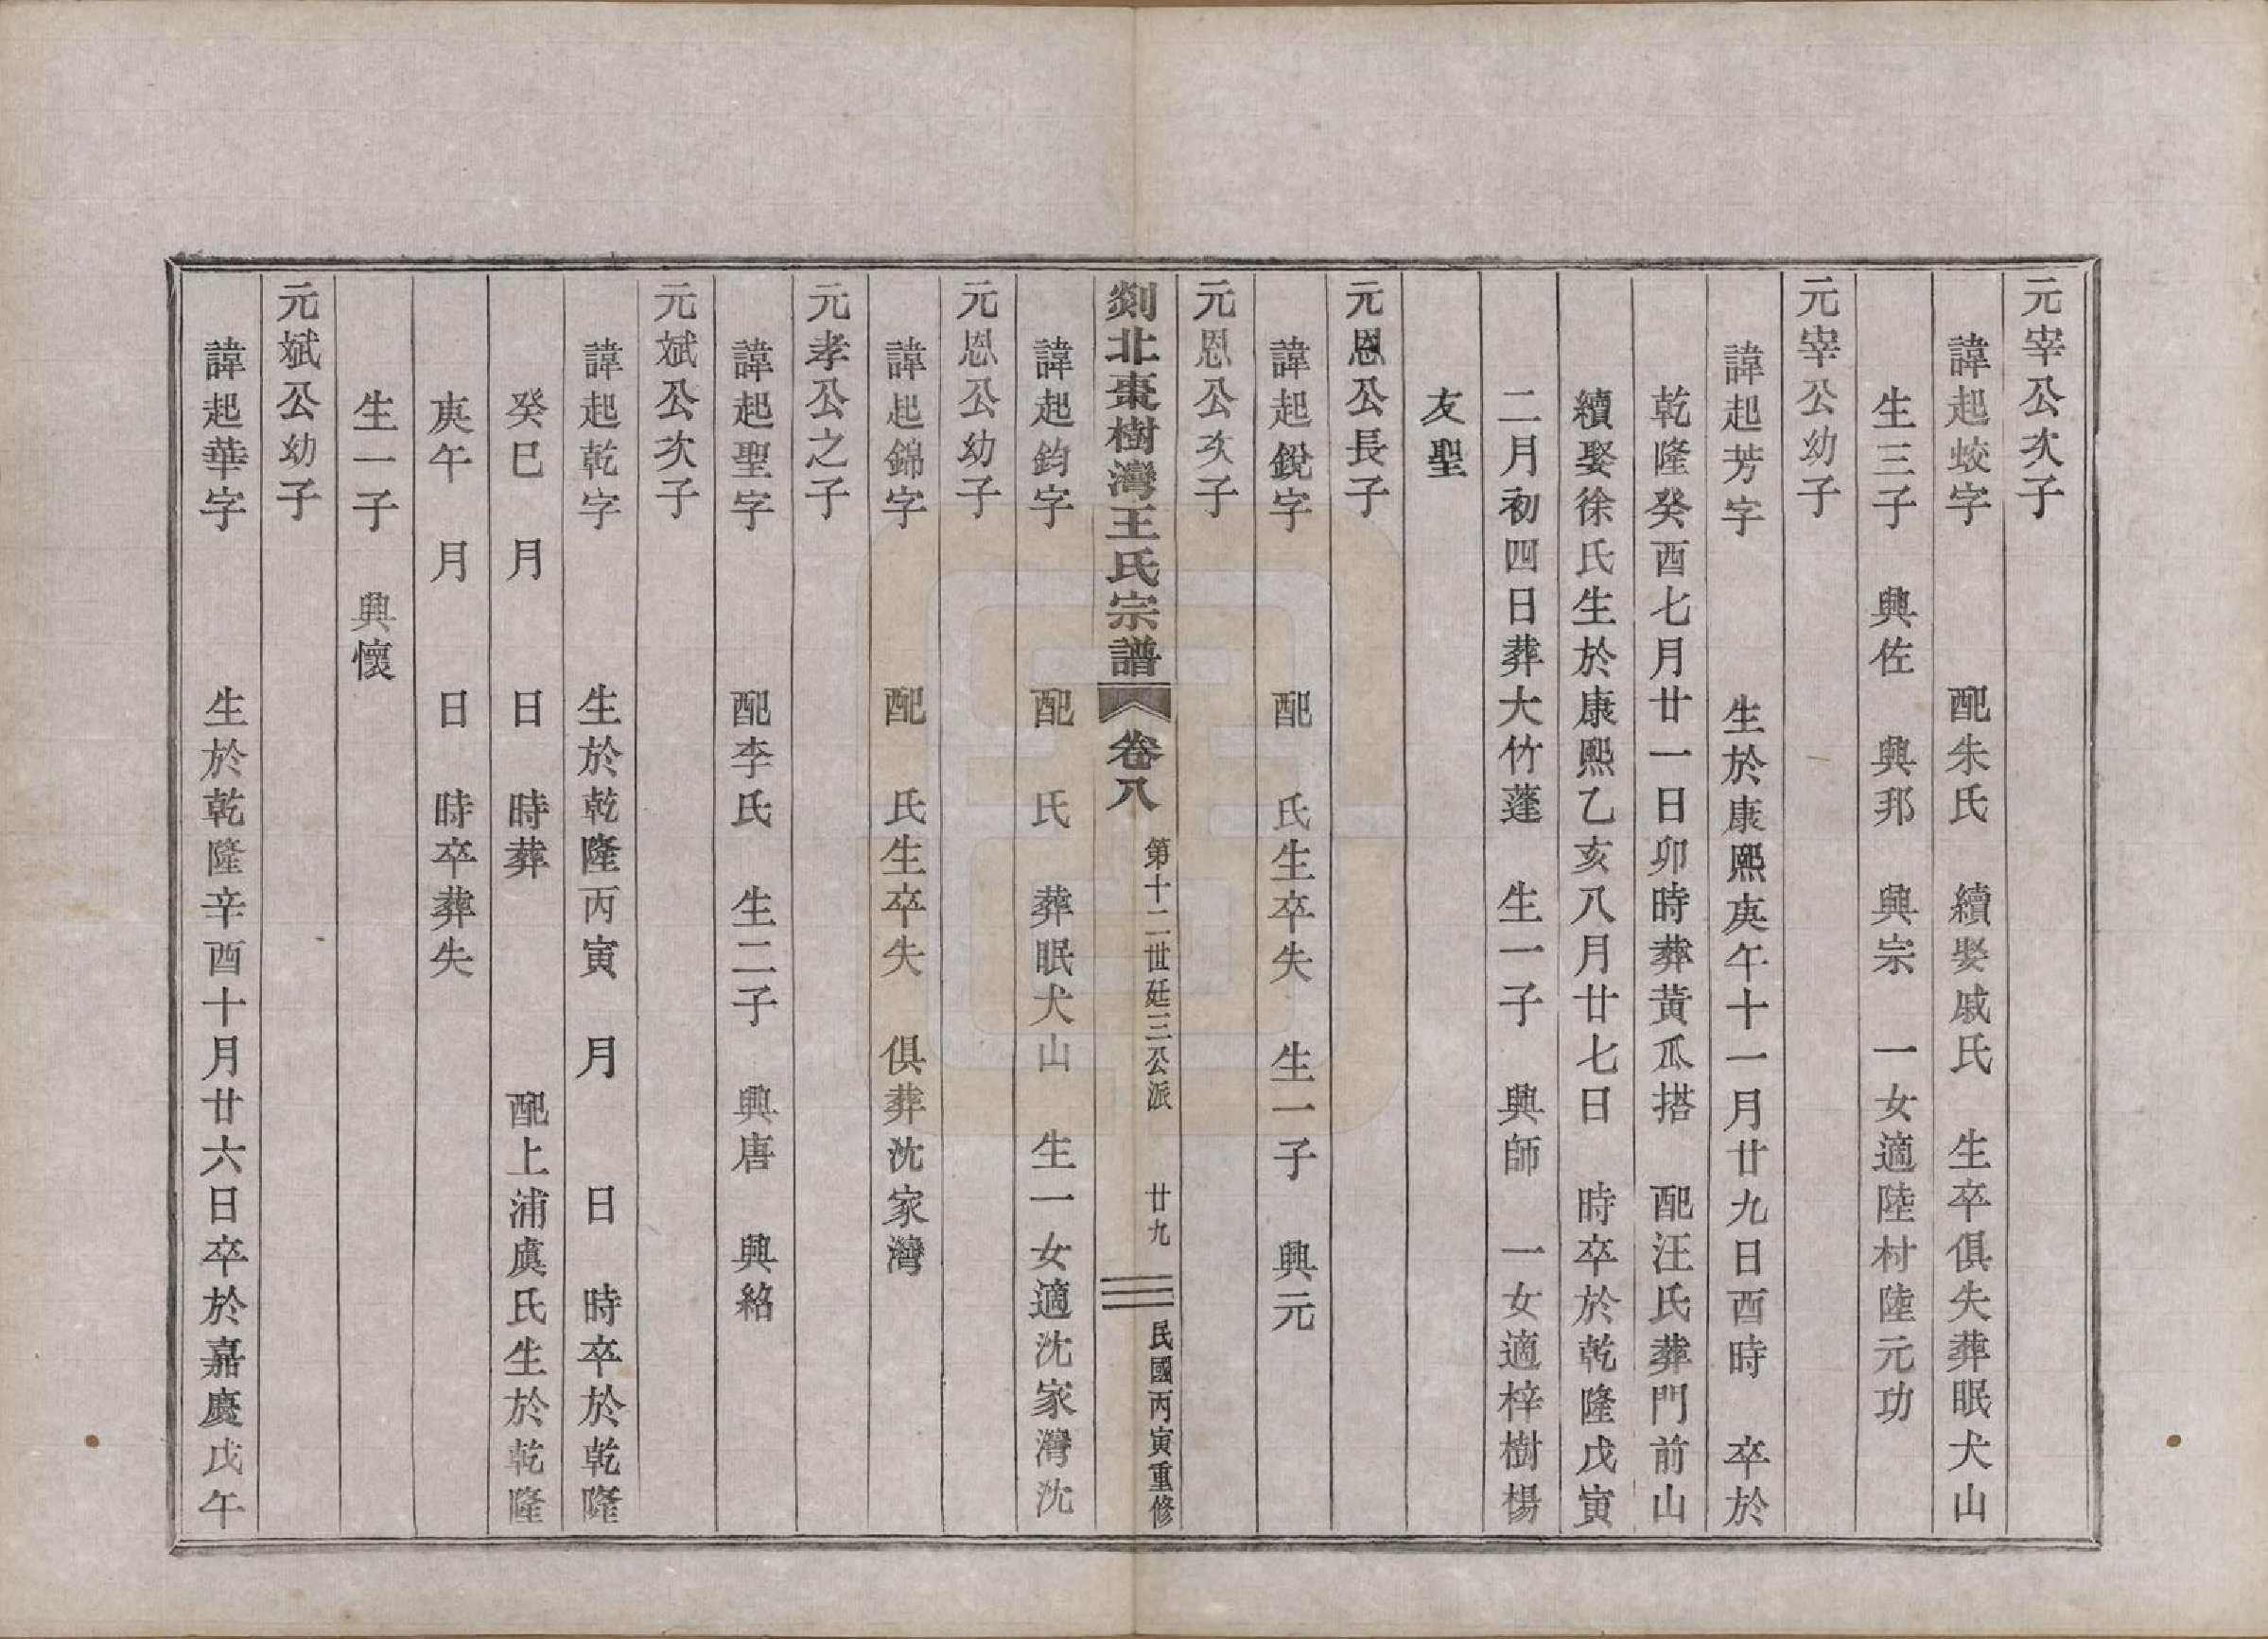 元宰公次子
諱起蛟字　配朱氏　續娶戚氏　生卒俱失葬眠犬山
生三子　興佐　興邦　興宗　一女適陸村陸元功
元宰公幼子
諱起芳字　生於康熙庚午十一月廿九日酉時　卒於
乾隆癸酉七月廿一日卯時葬黃瓜搭　配汪氏葬門前山
續娶徐氏生於康熙乙亥八月廿七日　時卒於乾隆戊寅
二月初四日葬大竹蓬　生一子　興師　一女適梓樹楊
友聖
元恩公長子
諱起銳字　配　氏生卒失　生一子　興元
元恩公次子
剡北棗樹灣王氏宗譜　卷八　第十二世廷三公派　廿九　民國丙寅重修
諱起鈞字　配　氏　葬眠犬山　生一女適沈家灣沈
元恩公幼子
諱起錦字　配　氏生卒失　俱葬沈家灣
元孝公之子
諱起聖字　配李氏　生二子　興唐　興絡
元斌公次子
諱起乾字　生於乾隆丙寅　月　日　時卒於乾隆
癸巳　月　日　時葬　配上浦虞氏生於乾隆
庚午　月　日　時卒葬失
生一子　興懷
元斌公幼子
諱起華字　生於乾隆辛酉十月廿六日卒於嘉慶戊午